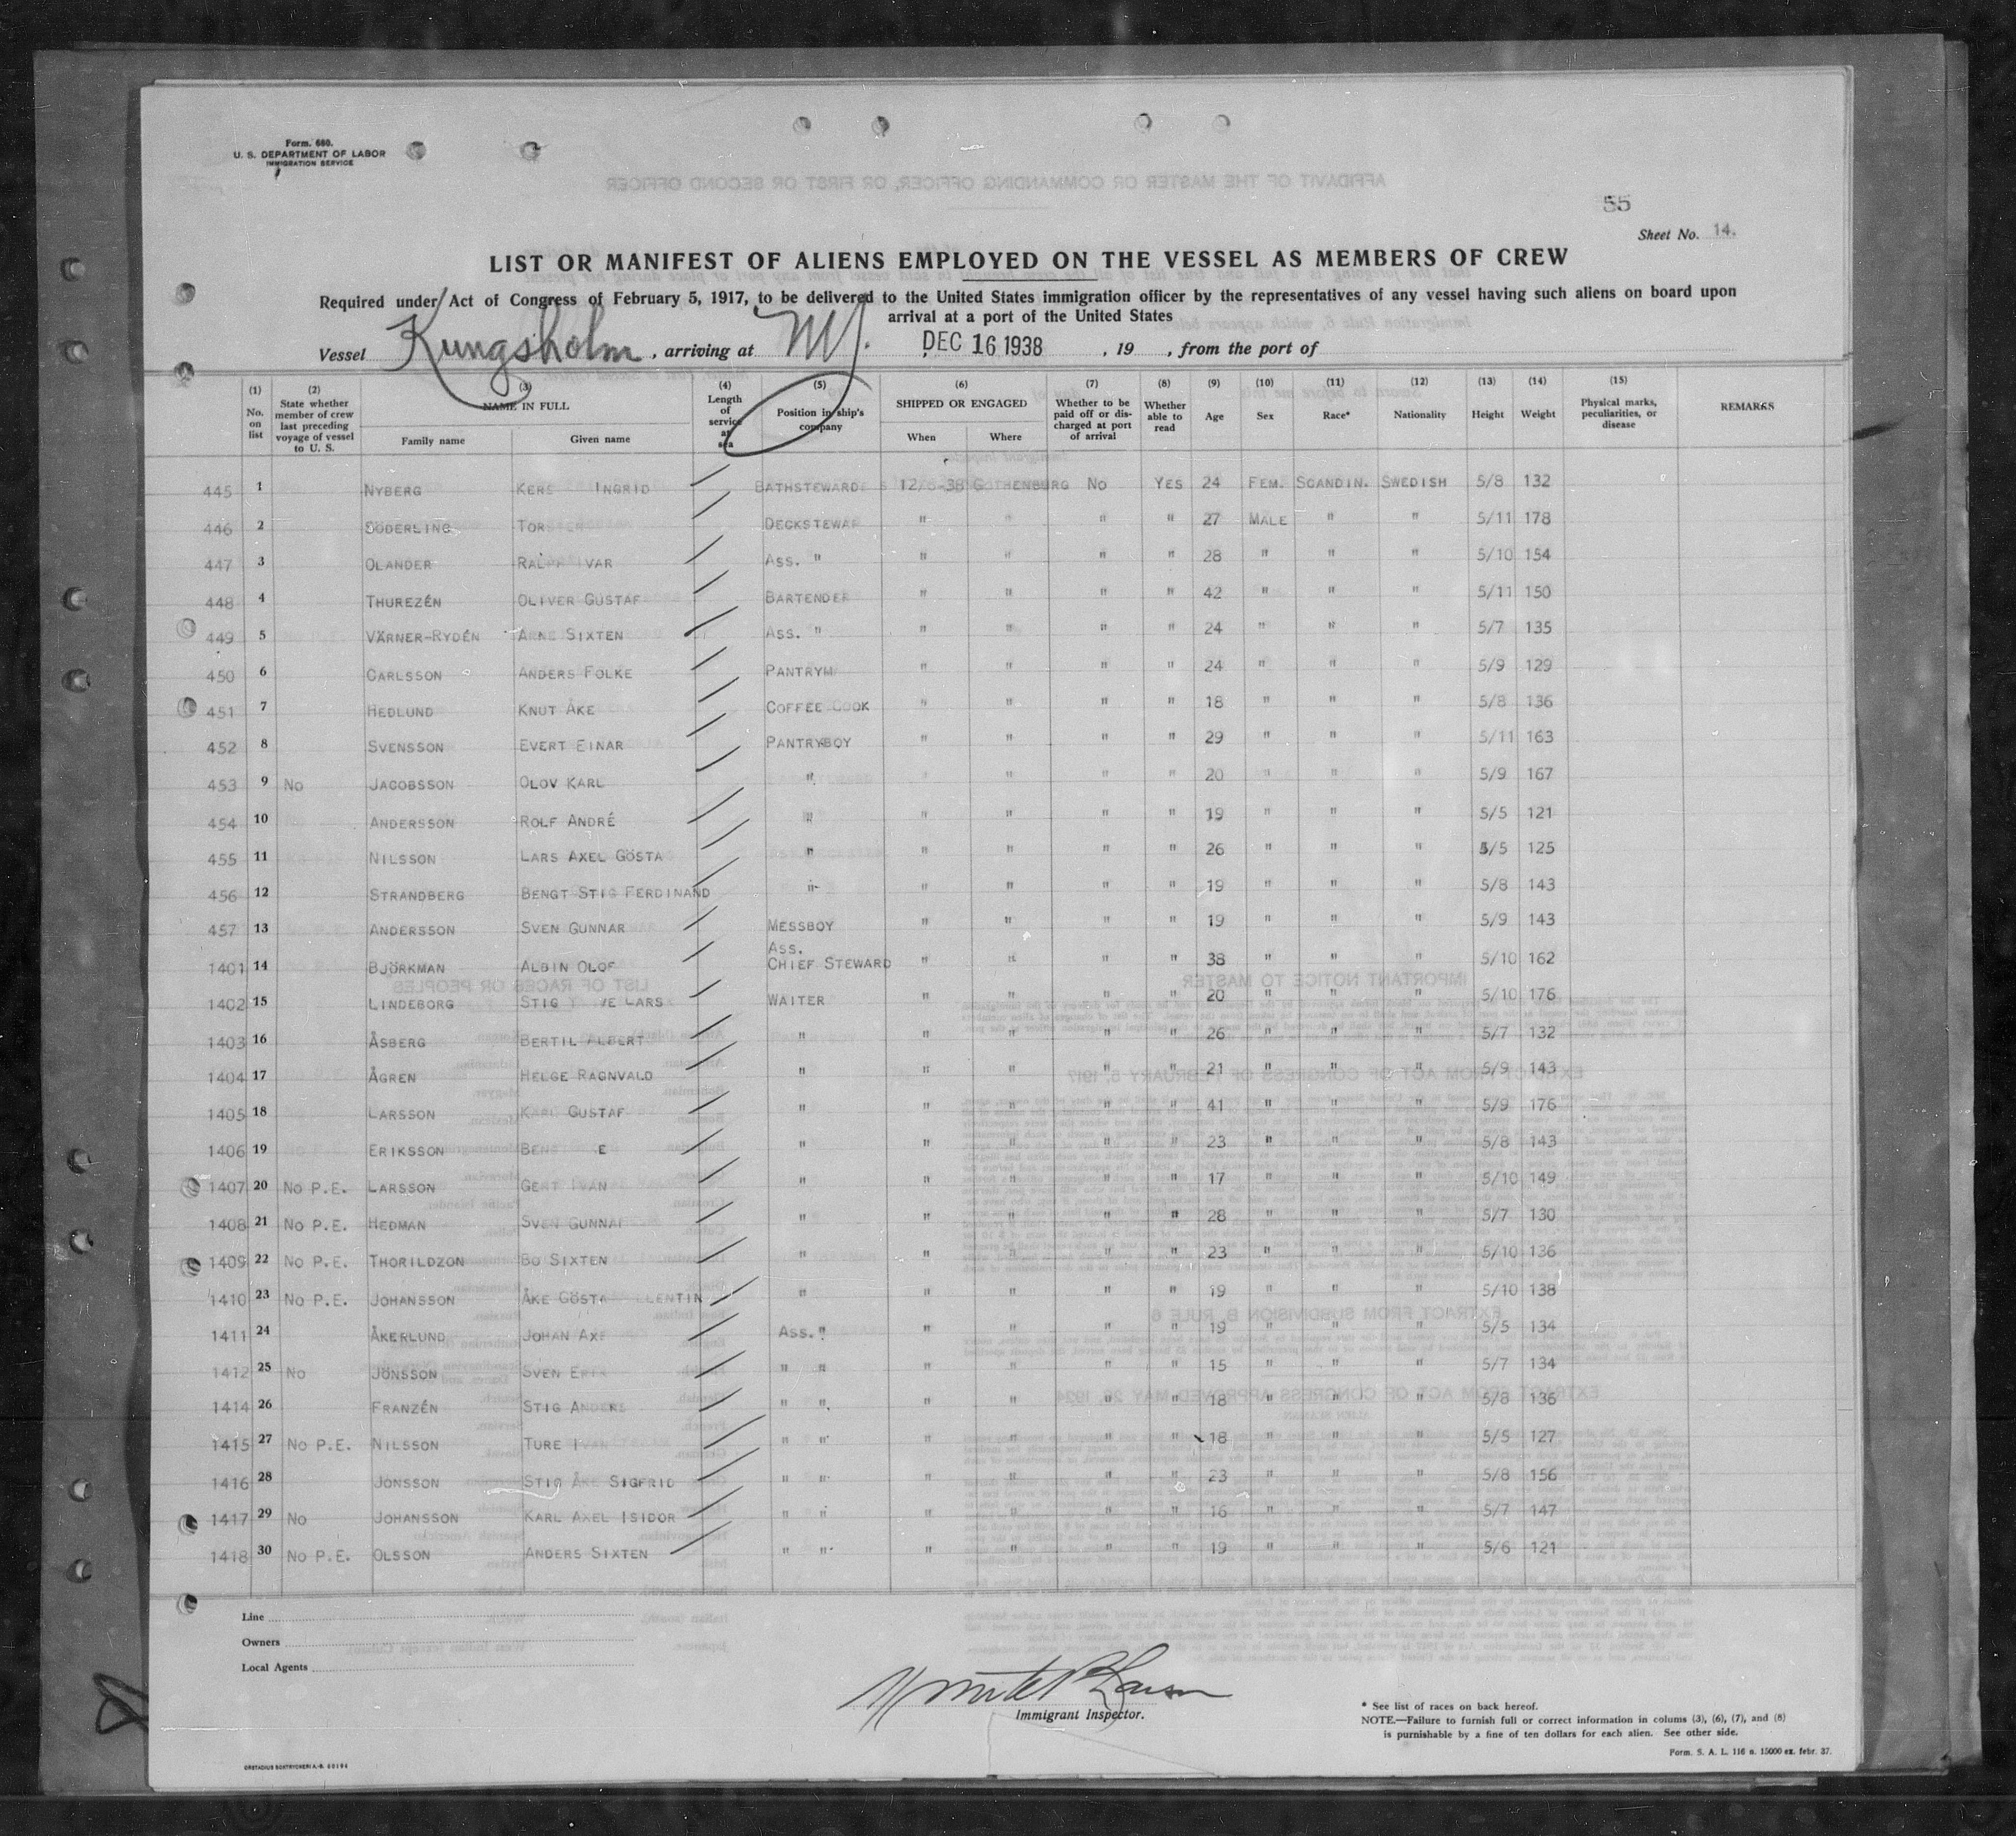 Form. 680.
U. S. DEPARTMENT OF LABOR
IMMIGRATION SERVICE
55
Sheet No. 14.
LIST OR MANIFEST OF ALIENS EMPLOYED ON THE VESSEL AS MEMBERS OF CREW
Required under Act of Congress of February 5, 1917, to be delivered to the United States immigration officer by the representatives of any vessel having such aliens on board upon
arrival at a port of the United States
Vessel Kungsholm, arriving at NY. DEC 16 1938, 19 , from the port of
(1) No. on list (2) State whether member of crew last preceding voyage of vessel to U. S. (3) NAME IN FULL Family name Given name (4) Length of service at sea (5) Position in ship's company (6) SHIPPED OR ENGAGED When Where (7) Whether to be paid off or discharged at port of arrival (8) Whether able to read (9) Age (10) Sex (11) Race* (12) Nationality (13) Height (14) Weight (15) Physical marks, peculiarities, or disease REMARKS
445 1 NYBERG INGRID BATHSTEWARDE 12/ -38 GOTHENBURG NO YES 24 FEM. SCANDIN. SWEDISH 5/8 132
446 2 SÖDERLING TOR DECKSTEWAR " " " " 27 MALE " " 5/11 178
447 3 OLANDER RALF IVAR ASS. " " " " " 28 " " " 5/10 154
448 4 THUREZÉN OLIVER GUSTAF BARTENDER " " " " 42 " " " 5/11 150
449 5 VÄRNER-RYDÉN ARNE SIXTEN ASS. " " " " " 24 " " " 5/7 135
450 6 CARLSSON ANDERS FOLKE PANTRYM " " " " 24 " " " 5/9 129
451 7 HEDLUND KNUT ÅKE COFFEE COOK " " " " 18 " " " 5/8 136
452 8 SVENSSON EVERT EINAR PANTRYBOY " " " " 29 " " " 5/11 163
453 9 NO JACOBSSON OLOV KARL " " " " " 20 " " " 5/9 167
454 10 ANDERSSON ROLF ANDRÉ " " " " " 19 " " " 5/5 121
455 11 NILSSON LARS AXEL GÖSTA " " " " " 26 " " " 5/5 125
456 12 STRANDBERG BENGT STIG FERDINAND " " " " " 19 " " " 5/8 143
457 13 ANDERSSON SVEN GUNNAR MESSBOY " " " " 19 " " " 5/9 143
1401 14 BJÖRKMAN ALBIN OLOF ASS. CHIEF STEWARD " " " " 38 " " " 5/10 162
1402 15 LINDEBORG STIG LARS WAITER " " " " 20 " " " 5/10 176
1403 16 ÅSBERG BERTIL ALBERT " " " " " 26 " " " 5/7 132
1404 17 ÅGREN HELGE RAGNVALD " " " " " 21 " " " 5/9 143
1405 18 LARSSON KARL GUSTAF " " " " " 41 " " " 5/9 176
1406 19 ERIKSSON " " " " " 23 " " " 5/8 143
1407 20 NO P.E. LARSSON GERT IVAN " " " " " 17 " " " 5/10 149
1408 21 NO P.E. HEDMAN SVEN GUNNAR " " " " " 28 " " " 5/7 130
1409 22 NO P.E. THORILDZON BO SIXTEN " " " " " 23 " " " 5/10 136
1410 23 NO P.E. JOHANSSON ÅKE GÖSTA " " " " " 19 " " " 5/10 138
1411 24 ÅKERLUND JOHAN AXE ASS. " " " " " 19 " " " 5/5 134
1412 25 NO JÖNSSON SVEN ERIK " " " " " " 15 " " " 5/7 134
1414 26 FRANZÉN STIG ANDERS " " " " " " 18 " " " 5/8 136
1415 27 NO P.E. NILSSON TURE IVAN " " " " " " 18 " " " 5/5 127
1416 28 JONSSON STIG ÅKE SIGFRID " " " " " " 23 " " " 5/8 156
1417 29 NO JOHANSSON KARL AXEL ISIDOR " " " " " " 16 " " " 5/7 147
1418 30 NO P.E. OLSSON ANDERS SIXTEN " " " " " " 19 " " " 5/6 121
Line
Owners
Local Agents
Immigrant Inspector.
* See list of races on back hereof.
NOTE.—Failure to furnish full or correct information in colums (3), (6), (7), and (8)
is punishable by a fine of ten dollars for each alien. See other side.
Form. S. A. L. 116 a. 15000 ex. febr. 37.